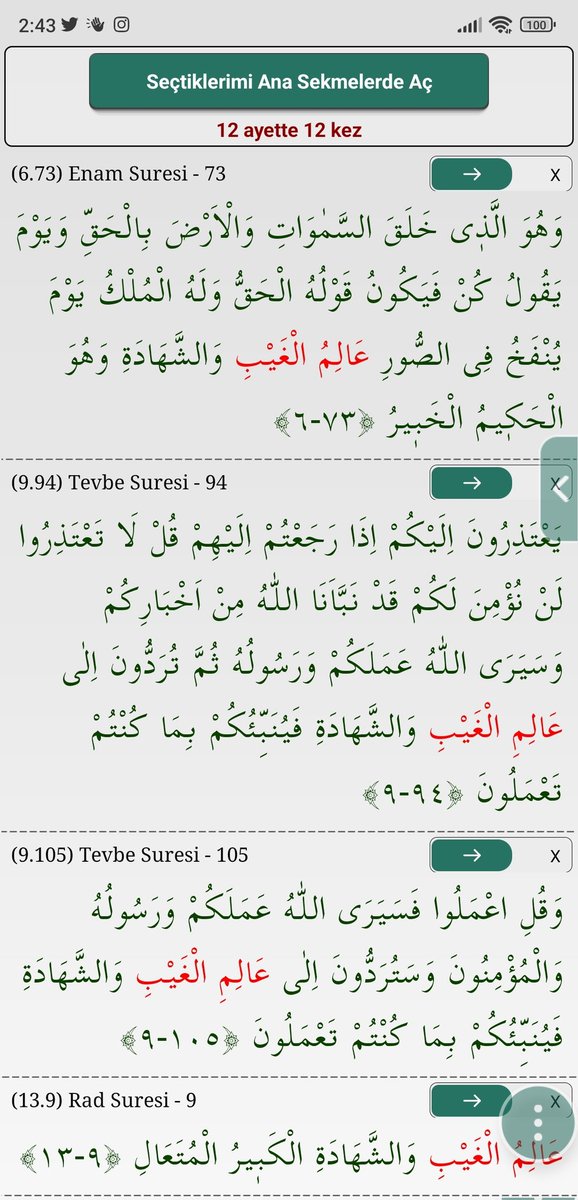 2:43
100
Seçtiklerimi Ana Sekmelerde Aç
12 ayette 12 kez
(6.73) Enam Suresi - 73
→ X
وَهُوَ الَّذٖى خَلَقَ السَّمٰوَاتِ وَالْاَرْضَ بِالْحَقِّ وَيَوْمَ
يَقُولُ كُنْ فَيَكُونُ قَوْلُهُ الْحَقُّ وَلَهُ الْمُلْكُ يَوْمَ
يُنْفَخُ فِى الصُّورِ عَالِمُ الْغَيْبِ وَالشَّهَادَةِ وَهُوَ
الْحَكٖيمُ الْخَبٖيرُ ﴿٧٣-٦﴾
(9.94) Tevbe Suresi - 94
→ X
يَعْتَذِرُونَ اِلَيْكُمْ اِذَا رَجَعْتُمْ اِلَيْهِمْ قُلْ لَا تَعْتَذِرُوا
لَنْ نُؤْمِنَ لَكُمْ قَدْ نَبَّاَنَا اللّٰهُ مِنْ اَخْبَارِكُمْ
وَسَيَرَى اللّٰهُ عَمَلَكُمْ وَرَسُولُهُ ثُمَّ تُرَدُّونَ اِلٰى
عَالِمِ الْغَيْبِ وَالشَّهَادَةِ فَيُنَبِّئُكُمْ بِمَا كُنْتُمْ
تَعْمَلُونَ ﴿٩٤-٩﴾
(9.105) Tevbe Suresi - 105
→ X
وَقُلِ اعْمَلُوا فَسَيَرَى اللّٰهُ عَمَلَكُمْ وَرَسُولُهُ
وَالْمُؤْمِنُونَ وَسَتُرَدُّونَ اِلٰى عَالِمِ الْغَيْبِ وَالشَّهَادَةِ
فَيُنَبِّئُكُمْ بِمَا كُنْتُمْ تَعْمَلُونَ ﴿١٠٥-٩﴾
(13.9) Rad Suresi - 9
→ X
عَالِمُ الْغَيْبِ وَالشَّهَادَةِ الْكَبٖيرُ الْمُتَعَالِ ﴿٩-١٣﴾